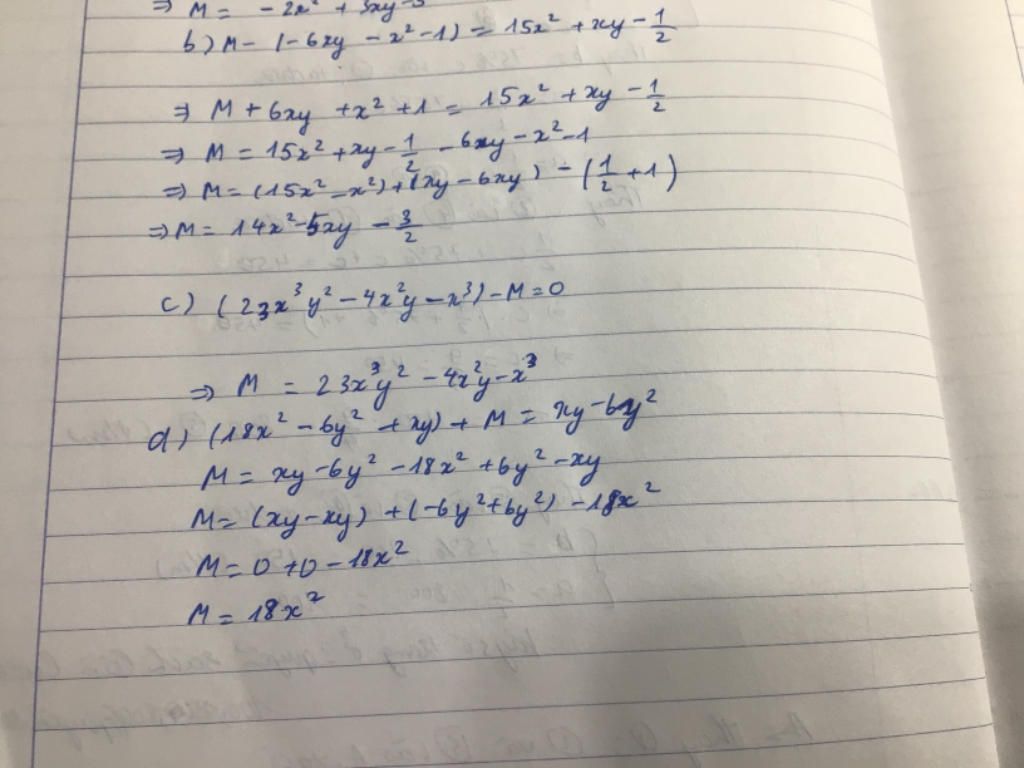 ⇒ M = -2x² + 3xy - 3
b) M - (-6xy - x² - 1) = 15x² + xy - 1/2
⇒ M + 6xy + x² + 1 = 15x² + xy - 1/2
⇒ M = 15x² + xy - 1/2 - 6xy - x² - 1
⇒ M = (15x² - x²) + (xy - 6xy) - (1/2 + 1)
⇒ M = 14x² - 5xy - 3/2
c) (23x³y² - 4x²y - x³) - M = 0
⇒ M = 23x³y² - 4x²y - x³
d) (18x² - 6y² + xy) + M = xy - 6y²
M = xy - 6y² - 18x² + 6y² - xy
M = (xy - xy) + (-6y² + 6y²) - 18x²
M = 0 + 0 - 18x²
M = 18x²